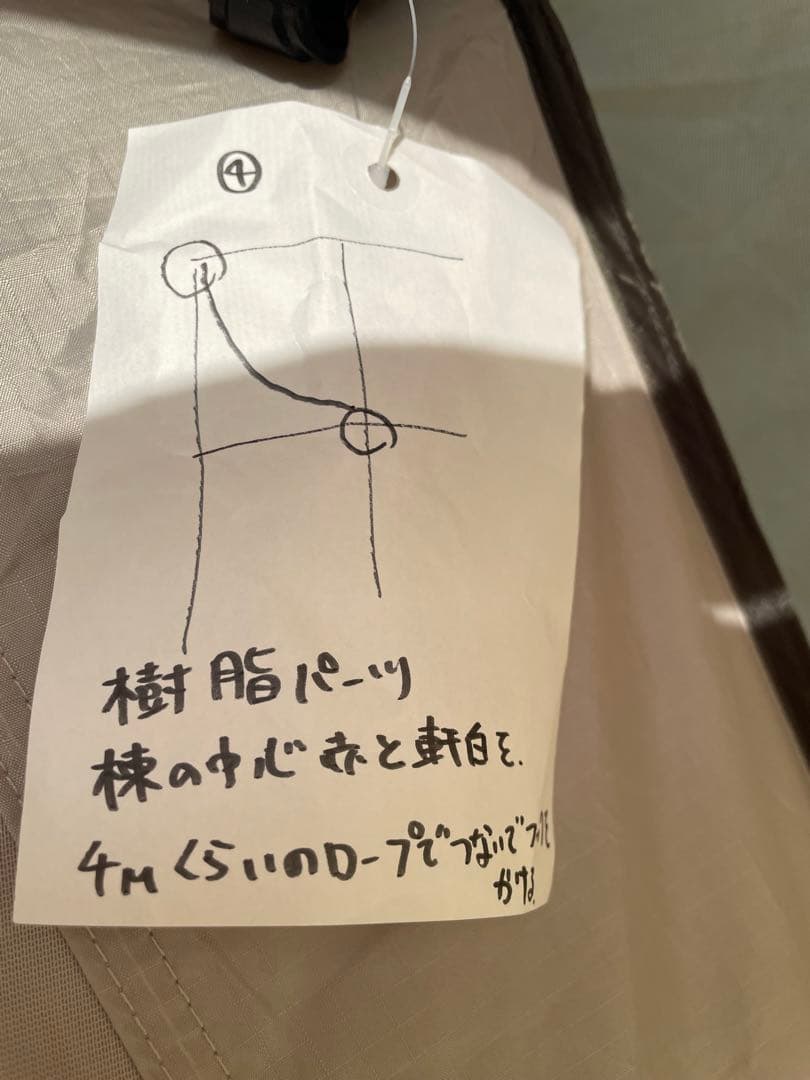 ④
樹脂パーツ
棟の中心赤と軒白を、
4Mくらいのロープでつないでフックを
かける。